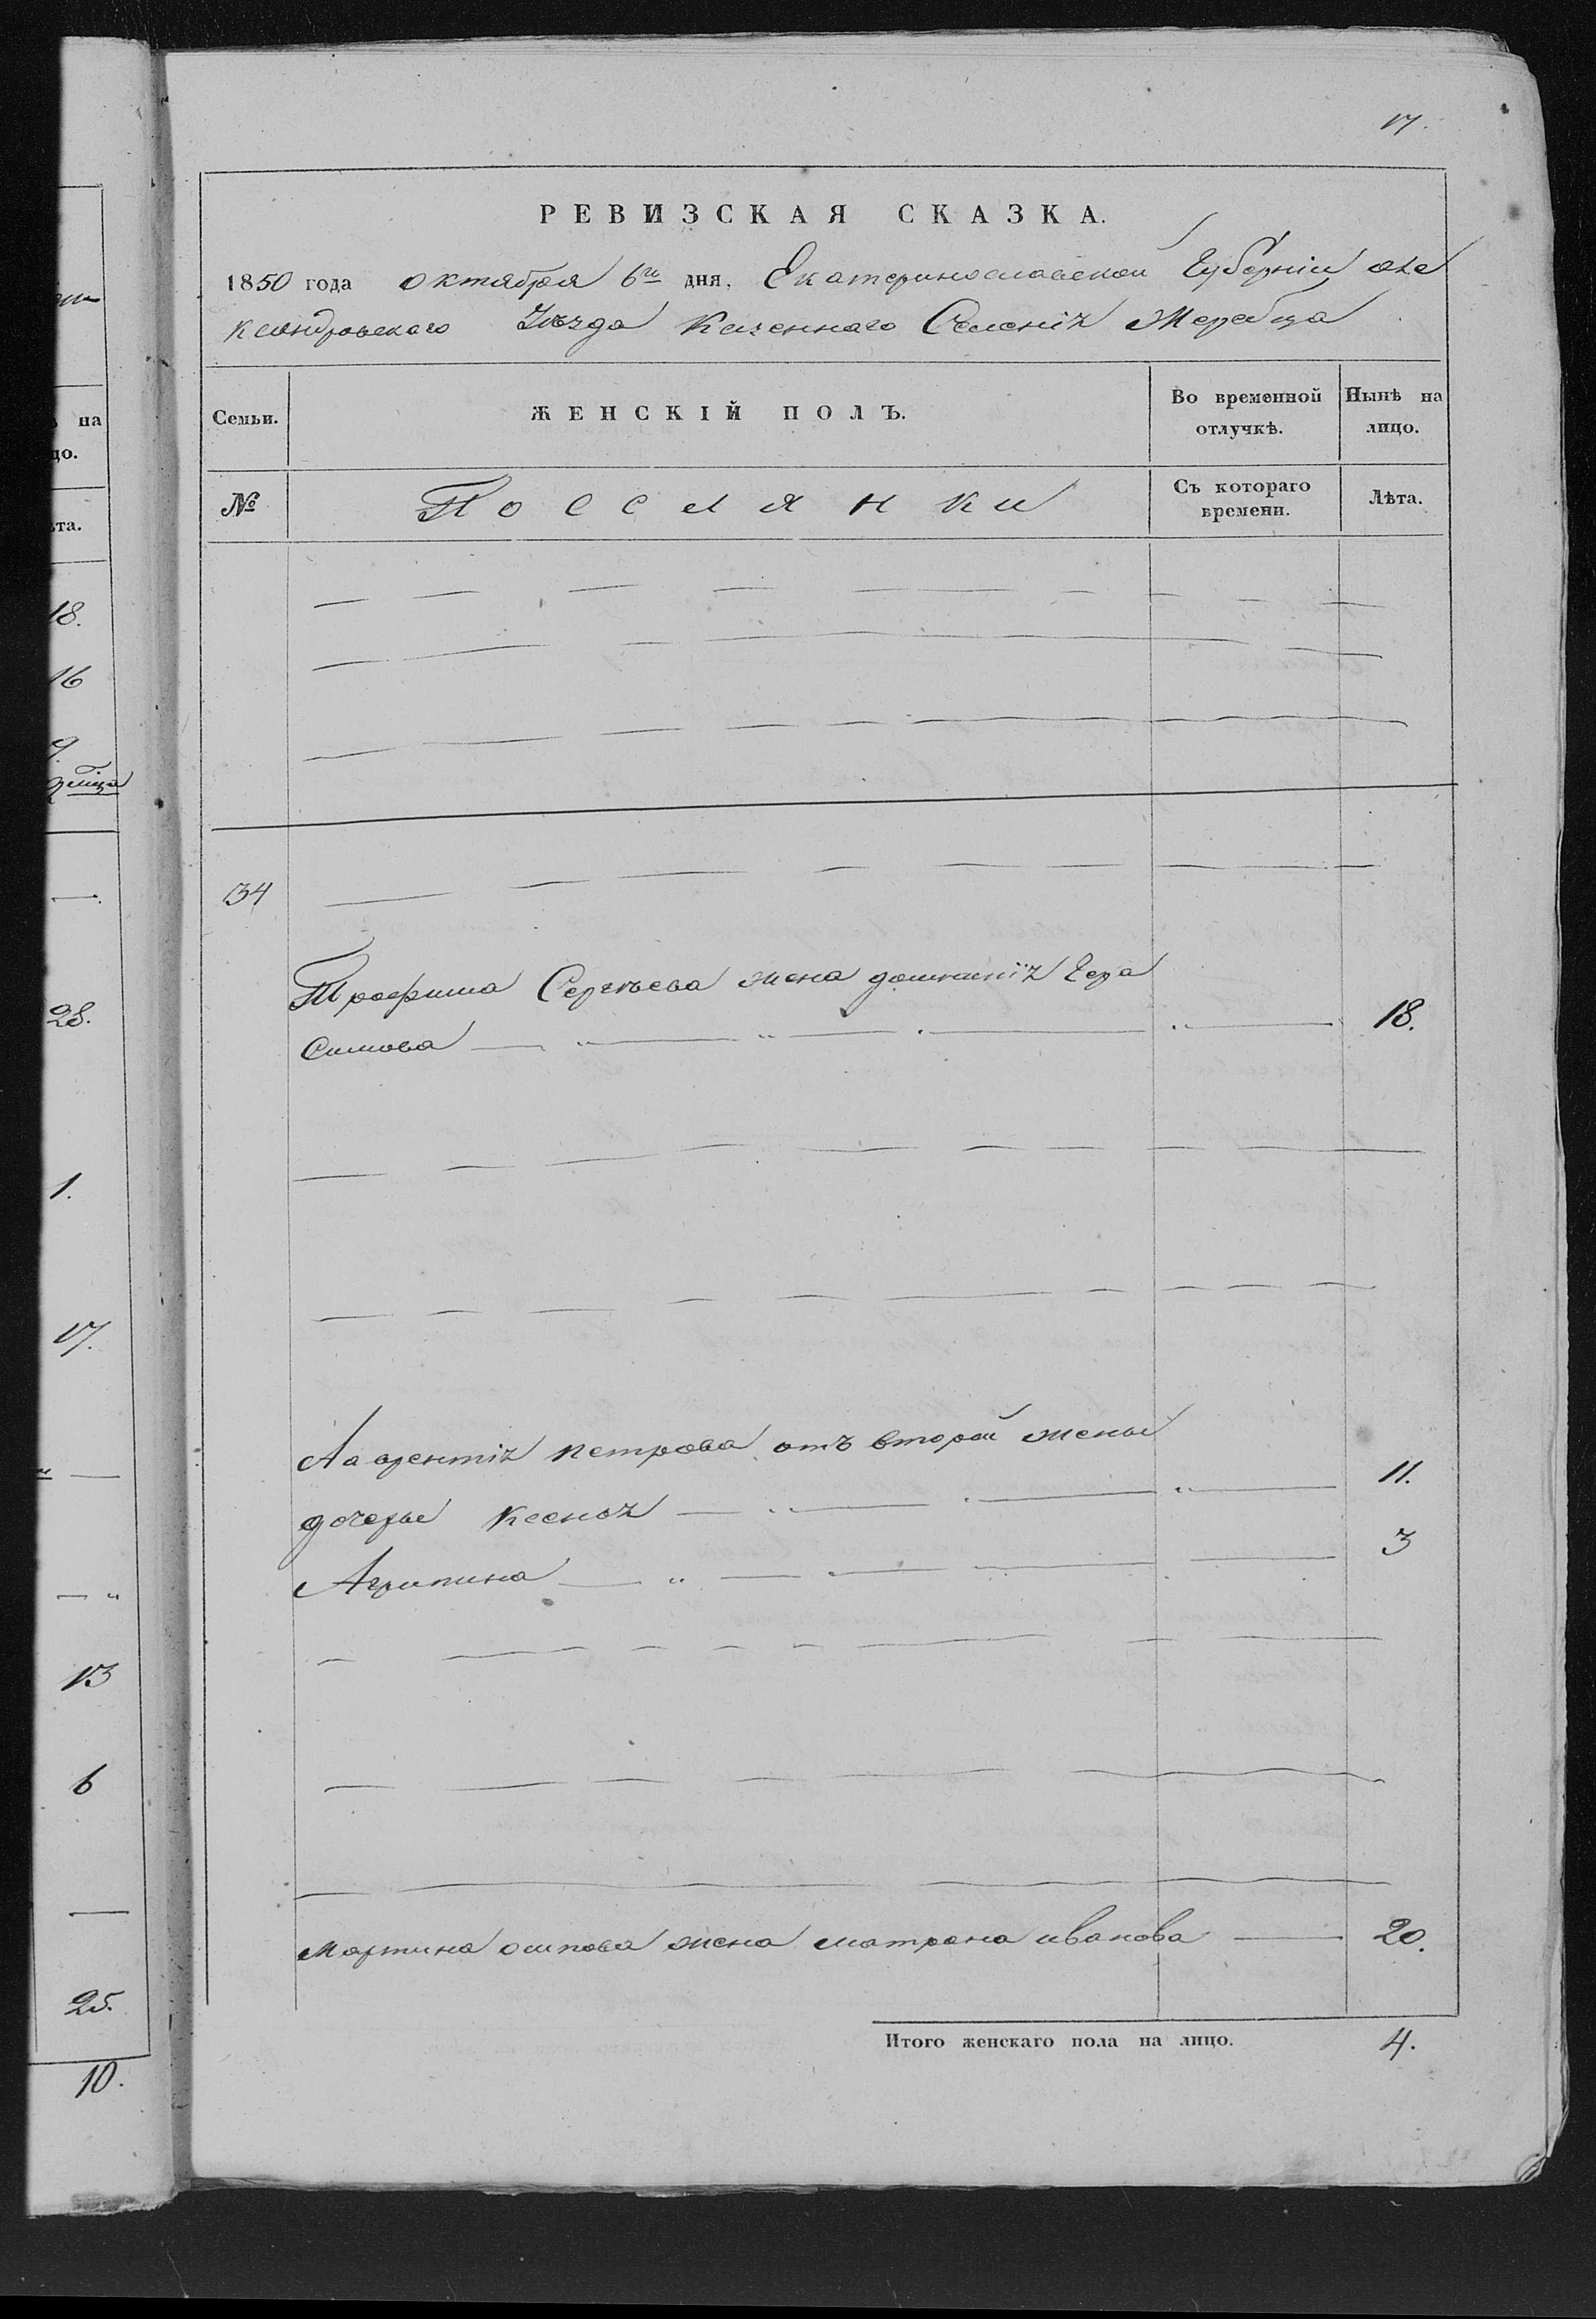 17.
РЕВИЗСКАЯ СКАЗКА.
1850 года октября 6го дня, Екатеринославской Губерніи але
ксандровскаго Уѣзда Казеннаго Селенія Жеребца
на
цо.
Семьи.
ЖЕНСКІЙ ПОЛЪ.
Во временной отлучкѣ.
Нынѣ на лицо.
ѣта.
№
Посселянки
Съ котораго времени.
Лѣта.
18.
16
9.
34
28.
Трофима Сергѣева жена домникія Гера
симова 18.
1.
17.
Лаврентія петрова отъ второй жены
дочеры ксенія 11.
Агрипина 3
13
6
мартина осипова жена матрона иванова 20.
25.
Итого женскаго пола на лицо. 4.
10.